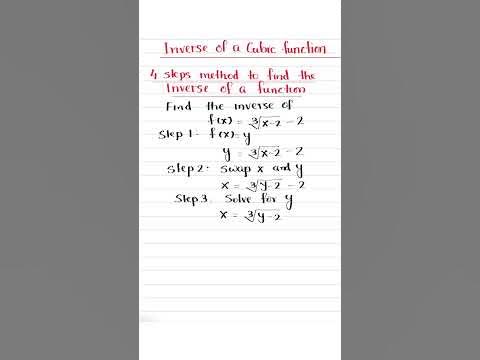 Inverse of a Cubic function
4 steps method to find the
Inverse of a function
Find the inverse of
f(x) = ∛(x-2) - 2
Step 1 - f(x)=y
y = ∛(x-2) - 2
Step 2: Swap x and y
x = ∛(y-2) - 2
Step 3. Solve for y
x = ∛(y-2)